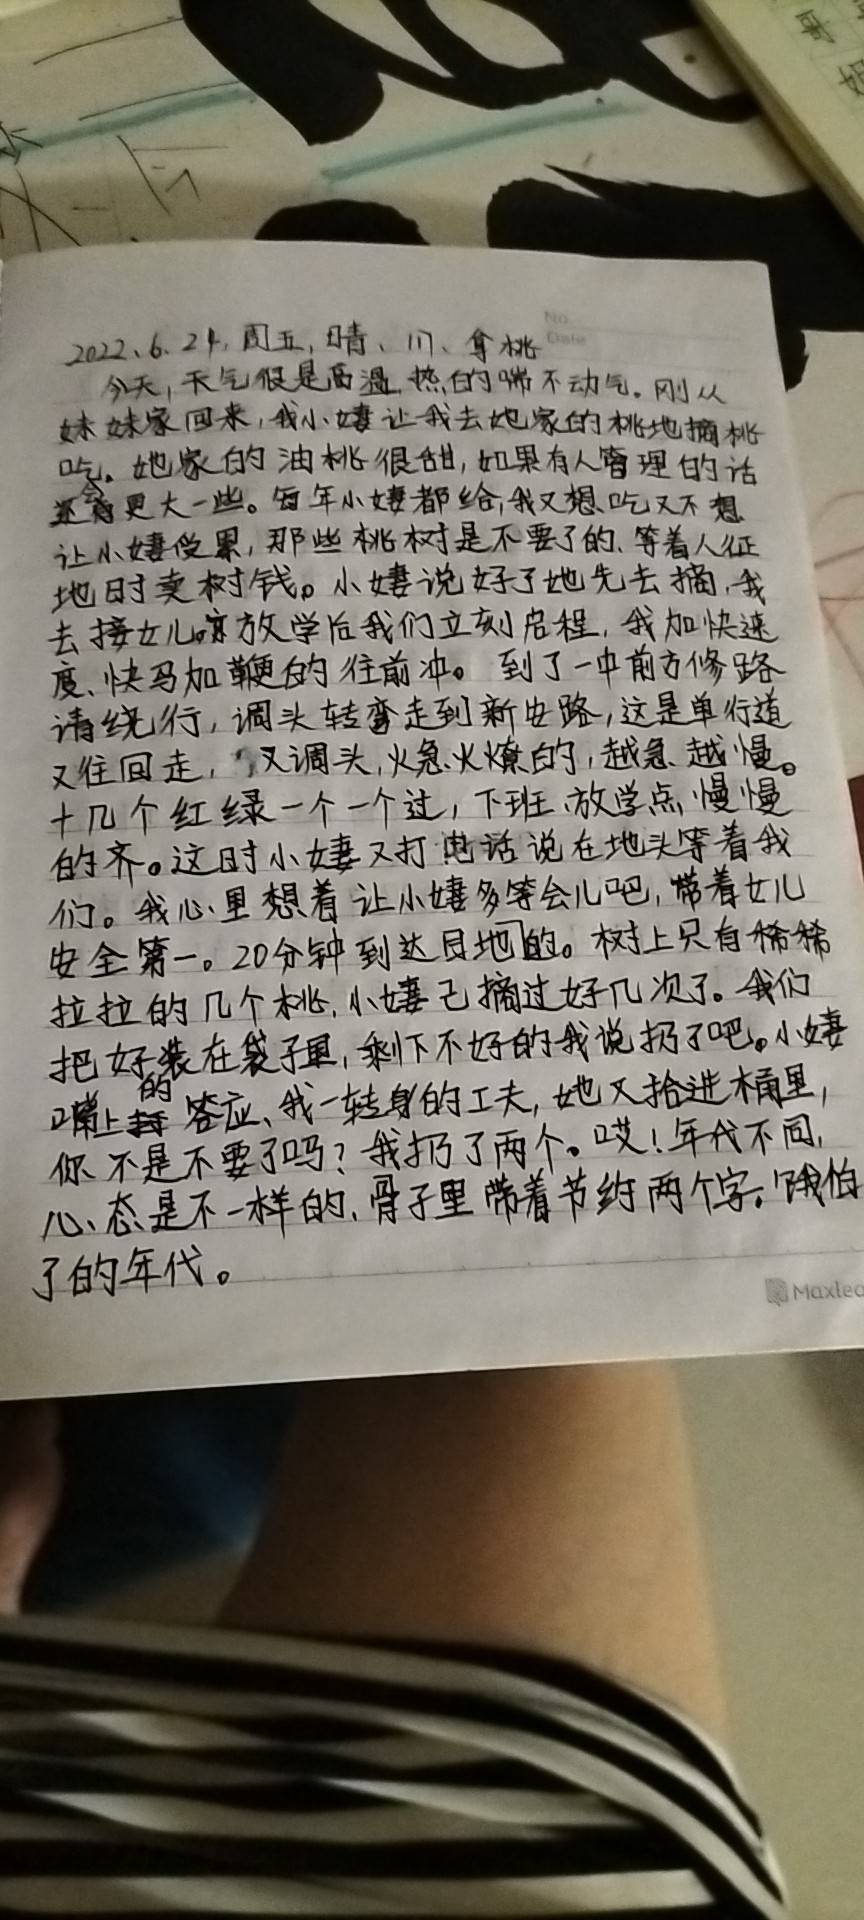 2022、6、24,周五,晴、111、拿桃
今天,天气很是高温,热的喘不动气。刚从
妹妹家回来,我小婶让我去她家的桃地摘桃
吃。她家的油桃很甜,如果有人管理的话
还会更大一些。每年小婶都给,我又想吃又不想
让小婶受累,那些桃树是不要了的、等着人征
地时卖树钱。小婶说好了她先去摘,我
去接女儿。放学后我们立刻启程,我加快速
度、快马加鞭的往前冲。到了一中前方修路
请绕行,调头转弯走到新安路,这是单行道
又往回走,又调头,火急火燎的,越急、越慢。
十几个红绿一个一个过,下班、放学点,慢慢
的齐。这时小婶又打电话说在地头等着我
们。我心里想着让小婶多等会儿吧,带着女儿
安全第一。20分钟到达目地的。树上只有稀稀
拉拉的几个桃,小婶已摘过好几次了。我们
把好装在袋子里,剩下不好的我说扔了吧。小婶
嘴上的答应、我一转身的工夫,她又拾进桶里,
你不是不要了吗?我扔了两个。哎!年代不同,
心态是不一样的、骨子里带着节约两个字。饿怕
了的年代。
No
Date
Maxlea